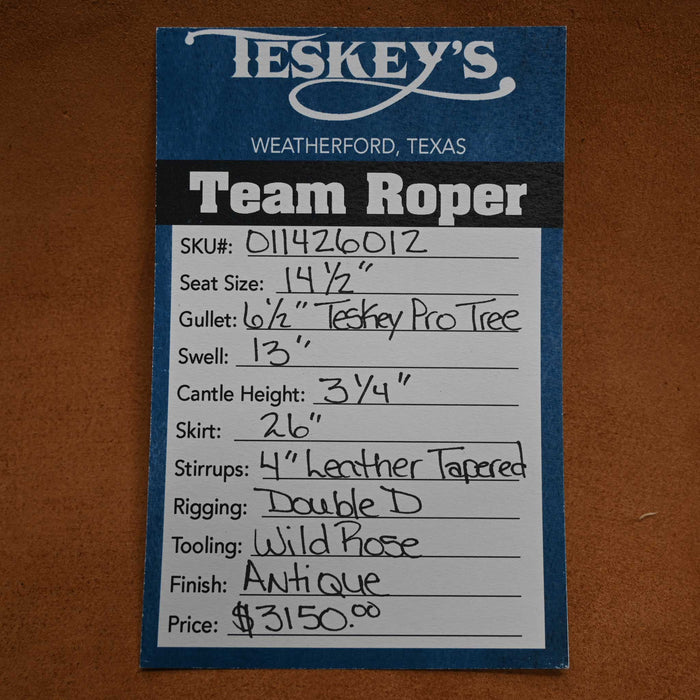 TESKEY'S
WEATHERFORD, TEXAS
Team Roper
SKU#: 011426012
Seat Size: 14 1/2"
Gullet: 6 1/2" Teskey Pro Tree
Swell: 13"
Cantle Height: 3 1/4"
Skirt: 26"
Stirrups: 4" Leather Tapered
Rigging: Double D
Tooling: Wild Rose
Finish: Antique
Price: $3150.00